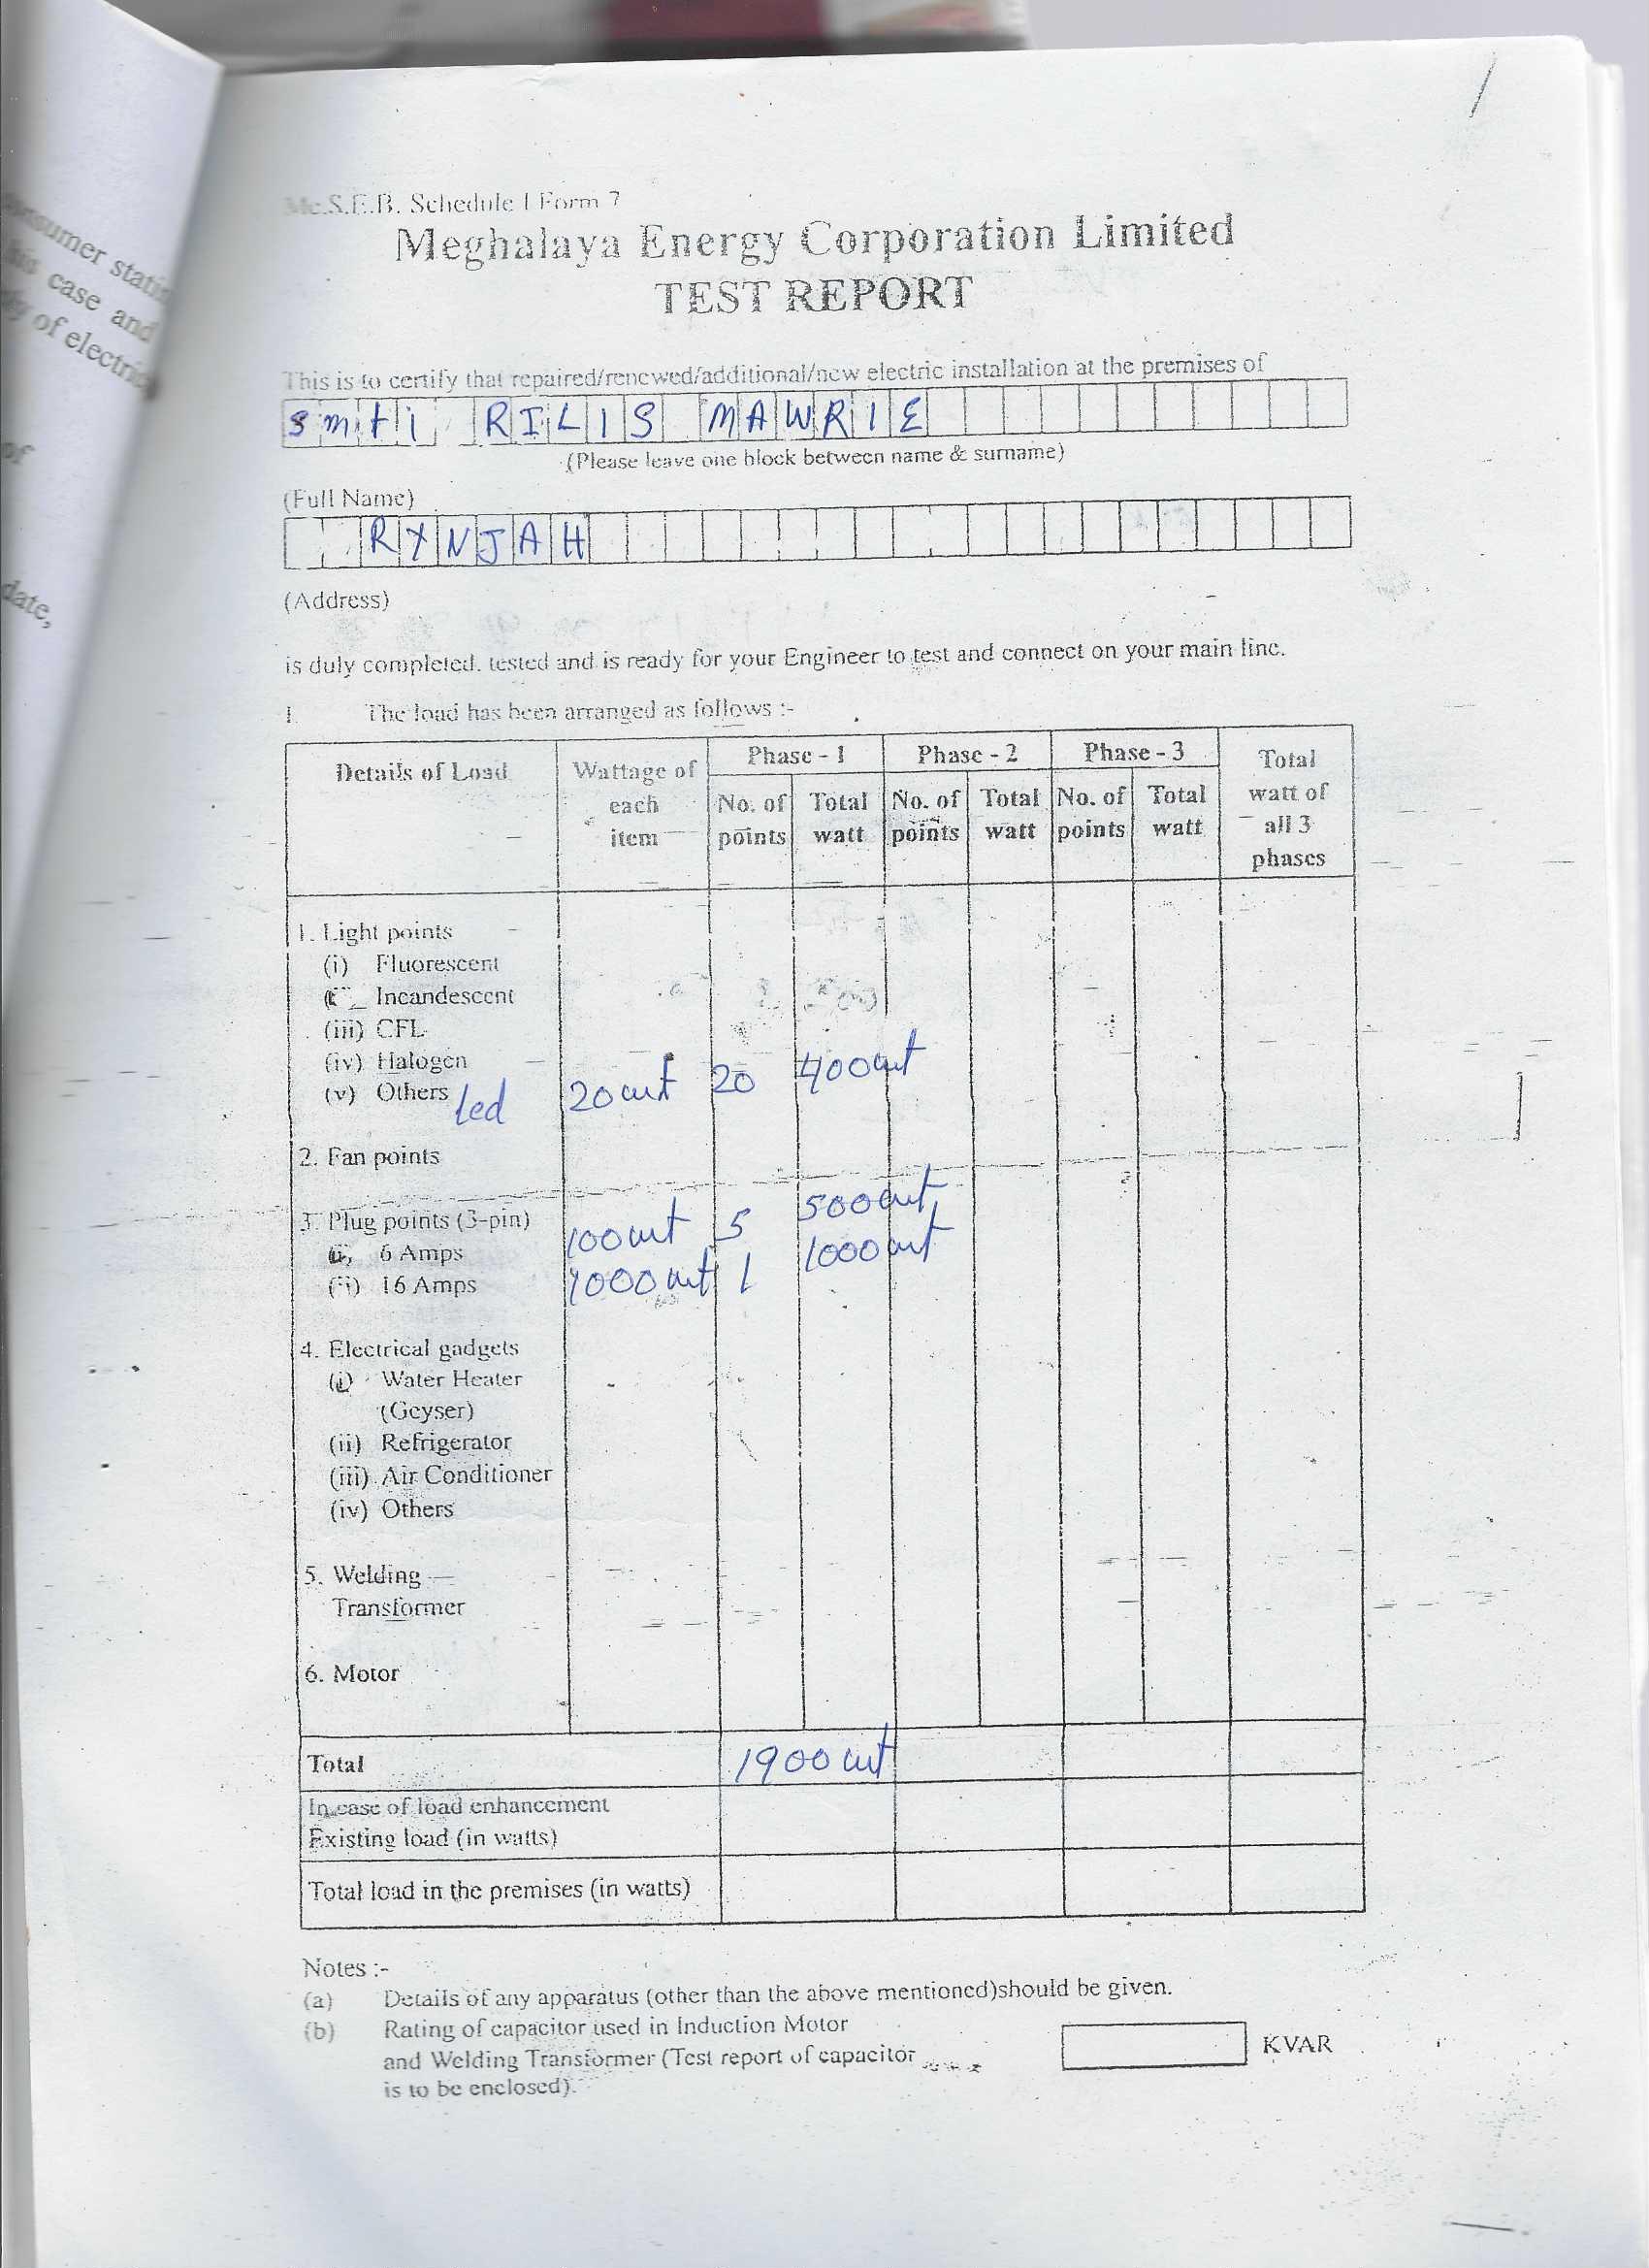 Me.S.E.B. Schedule I Form 7
Meghalaya Energy Corporation Limited
TEST REPORT
This is to certify that repaired/renewed/additional/new electric installation at the premises of
Smti RILIS MAWRIE
(Please leave one block between name & surname)
(Full Name)
RYNJAH
(Address)
is duly completed, tested and is ready for your Engineer to test and connect on your main line.
I. The load has been arranged as follows :-
Details of Load
Wattage of each item
Phase - 1
Phase - 2
Phase - 3
Total watt of all 3 phases
No. of points Total watt No. of points Total watt No. of points Total watt
1. Light points
(i) Fluorescent
Incandescent
(iii) CFL
(iv) Halogen
(v) Others Led 20wt 20 400wt
2. Fan points
3. Plug points (3-pin)
(i) 6 Amps 100wt 5 500wt
(ii) 16 Amps 1000wt 1 1000wt
4. Electrical gadgets
(i) Water Heater
(Geyser)
(ii) Refrigerator
(iii) Air Conditioner
(iv) Others
5. Welding
Transformer
6. Motor
Total 1900wt
In case of load enhancement
Existing load (in watts)
Total load in the premises (in watts)
Notes :-
(a) Details of any apparatus (other than the above mentioned)should be given.
(b) Rating of capacitor used in Induction Motor
and Welding Transformer (Test report of capacitor
is to be enclosed).
KVAR
case and
of electric
of
date,